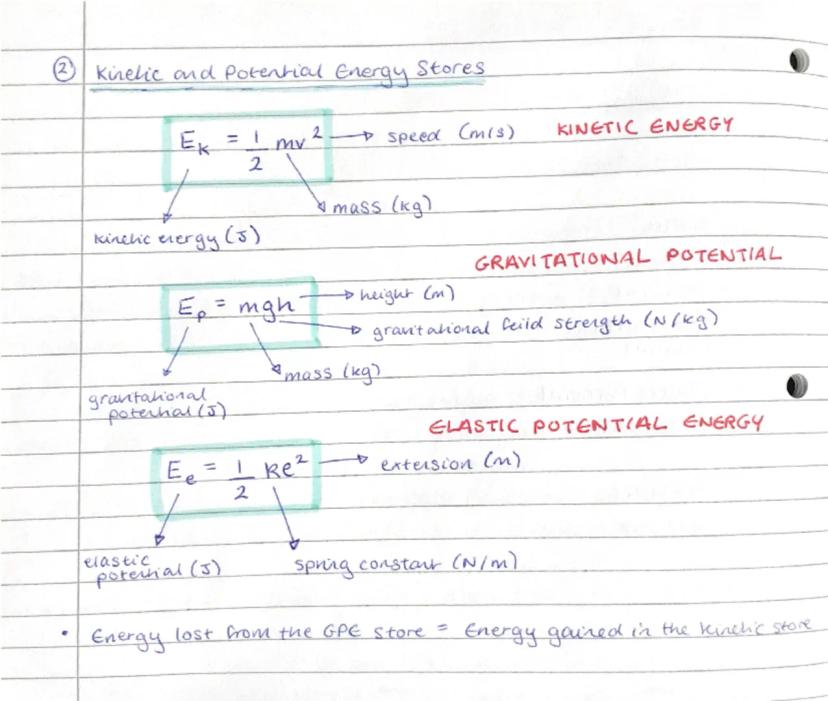 ② Kinetic and Potential Energy Stores
E_k = 1/2 mv² → speed (m/s) KINETIC ENERGY
mass (kg)
kinetic energy (J)
GRAVITATIONAL POTENTIAL
E_p = mgh → height (m)
gravitational feild strength (N/kg)
mass (kg)
gravitational
potential (J)
ELASTIC POTENTIAL ENERGY
E_e = 1/2 ke² → extension (m)
elastic
potential (J)
spring constant (N/m)
• Energy lost from the GPE store = Energy gained in the kinetic store